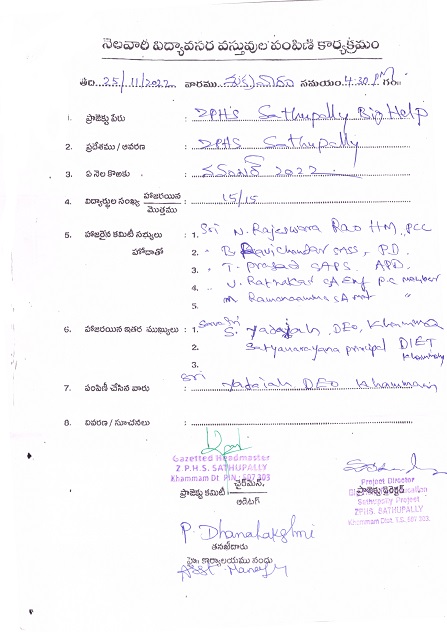 నెలవారి విద్యావసర వస్తువుల పంపిణి కార్యక్రమం
తేది 25/11/2022 వారము శుక్రవారం సమయం 4.30 PM గం॥
1. ప్రాజెక్టు పేరు : ZPHS Sathupally Big Help
2. ప్రదేశము / ఆవరణ : ZPHS Sathupally
3. ఏ నెల కొఱకు : నవంబర్ 2022
4. విద్యార్థుల సంఖ్య హాజరయిన / మొత్తము : 15/15
5. హాజరైన కమిటీ సభ్యులు : 1. Sri N. Rajeswara Rao HM, PCC
హోదాతో 2. " B. Ravichandar SASS, P.D.
3. " T. Prasad SAPS. APD.
4. " V. Ratnakar SA Eng P.C member
5. M. Ramanaamma SA mat "
6. హాజరయిన ఇతర ముఖ్యులు : 1. S. Yadaiah, DEO, Khammam
2. Satyanarayana principal DIET
Khammam
3.
7. పంపిణీ చేసిన వారు : Sri Yadaiah DEO Khammam
8. వివరణ / సూచనలు :
Gazetted Headmaster
Z.P.H.S. SATHUPALLY
Khammam Dt. PIN: 507 303
చైర్‌మెన్,
ప్రాజెక్టు కమిటి / ఆడిటర్
Project Director
ప్రాజెక్టు డైరెక్టర్
Sathupally Project
ZPHS. SATHUPALLY
Khammam Dist. T.S. 507 303.
P. Dhanalakshmi
తనఖీదారు
హై: కార్యాలయము నందు